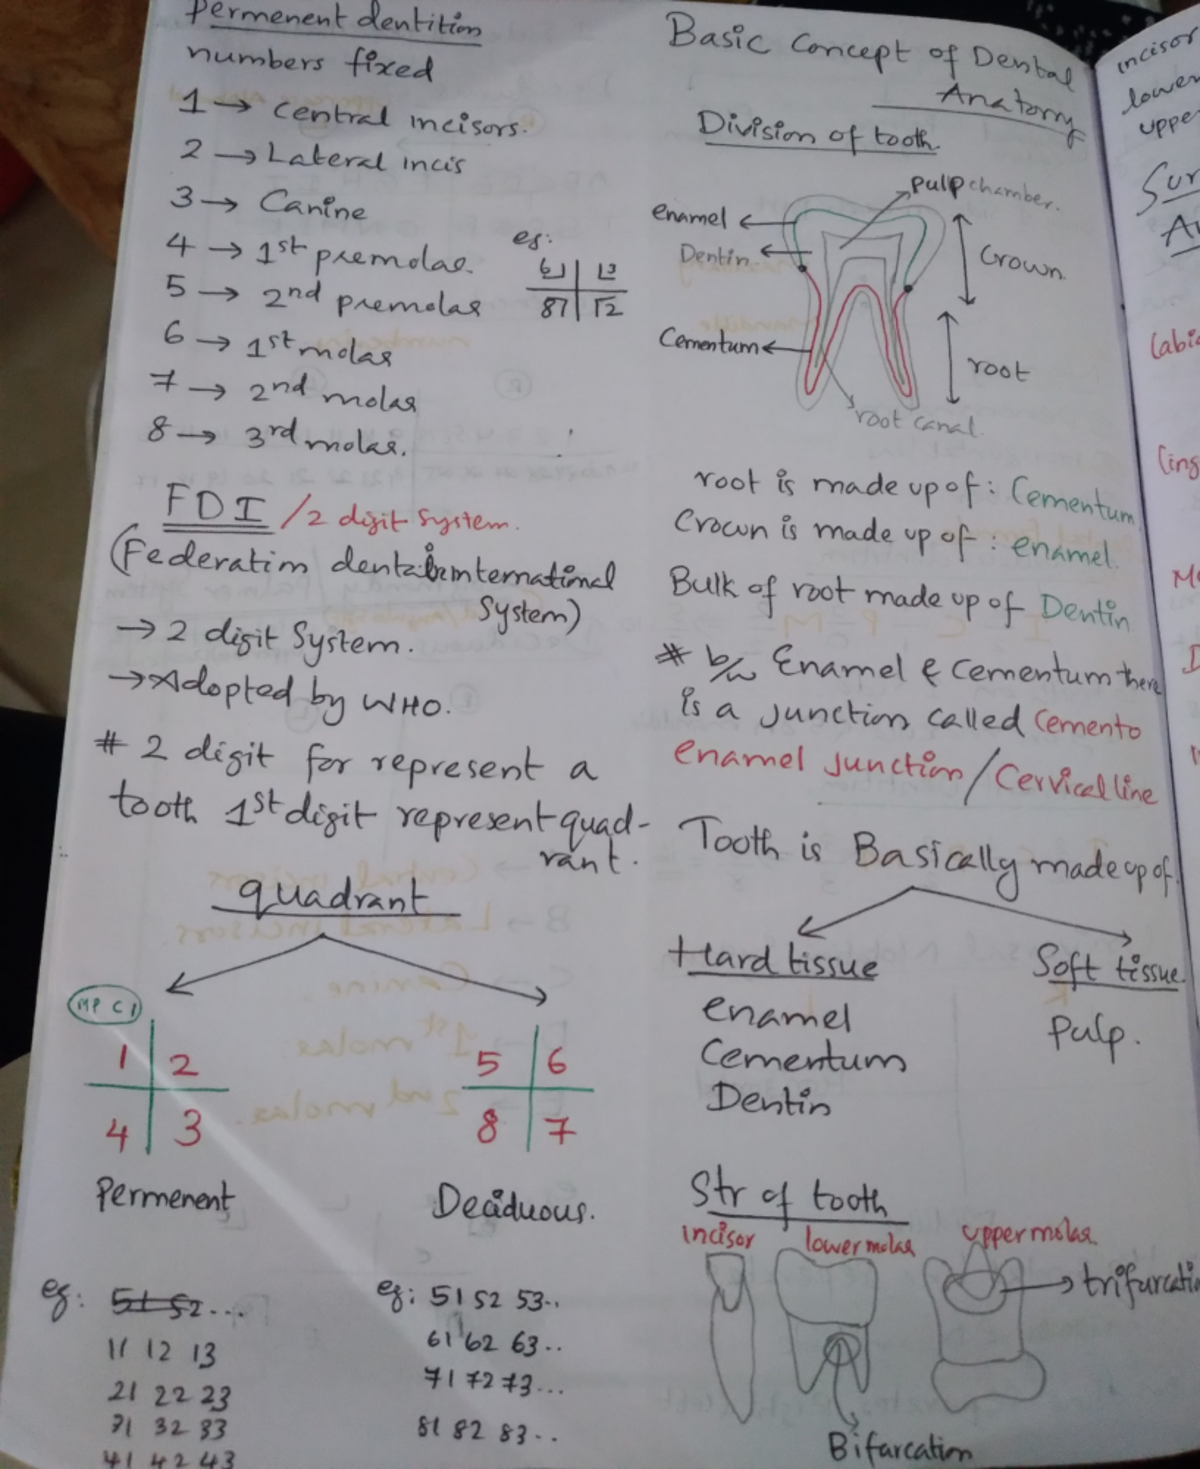 Permenent dentition
numbers fixed
1 → Central incisors.
2 → Lateral incis
3 → Canine
4 → 1st premolar.
5 → 2nd premolar
6 → 1st molar
7 → 2nd molar
8 → 3rd molar.
eg:
6 3
87 2
FDI / 2 digit System.
(Federation dental international
System)
→ 2 digit System.
→ Adopted by WHO.
# 2 digit for represent a
tooth 1st digit represent quad-
rant.
quadrant
MP CI
1 2
4 3
Permenent
5 6
8 7
Deciduous.
eg: 51 52 ...
11 12 13
21 22 23
31 32 33
41 42 43
eg: 51 52 53..
61 62 63..
71 72 73...
81 82 83..
Basic Concept of Dental
Anatomy
Division of tooth.
pulp chamber.
enamel
Dentin
Crown
Cementum
root
root canal.
root is made up of: Cementum
Crown is made up of: enamel.
Bulk of root made up of Dentin
* b/w Enamel & Cementum there
is a junction called Cemento
enamel junction / Cervical line
Tooth is Basically made up of
Hard tissue
enamel
Cementum
Dentin
Soft tissue
Pulp.
Str of tooth
incisor lower molar upper molar
trifurcati
Bifarcation
incisor
lower
uppe